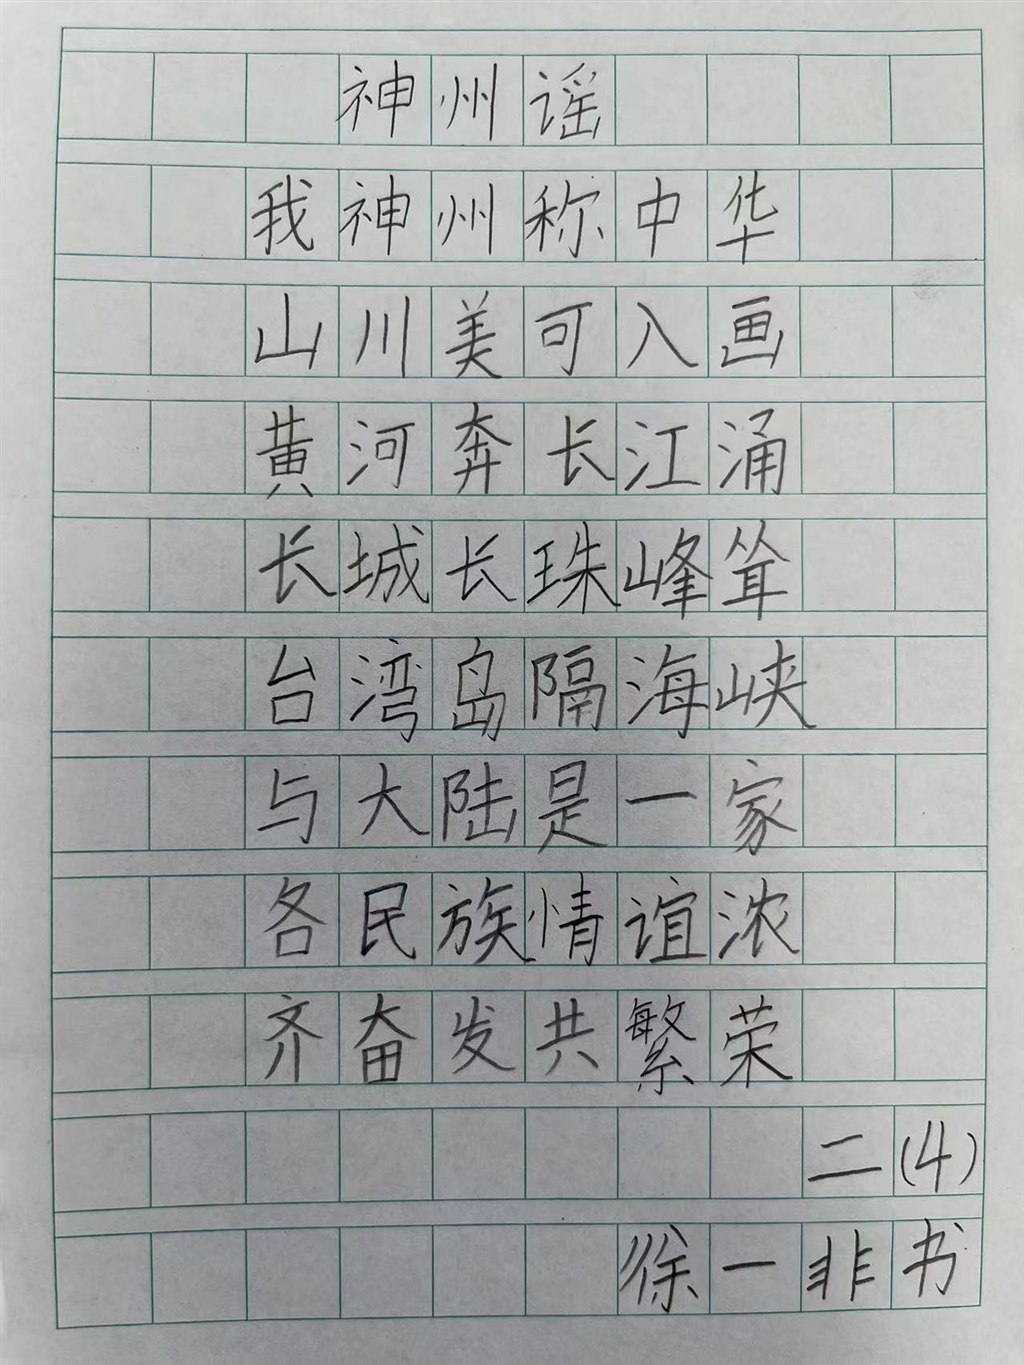 神州谣
我神州称中华
山川美可入画
黄河奔长江涌
长城长珠峰耸
台湾岛隔海峡
与大陆是一家
各民族情谊浓
齐奋发共繁荣
二(4)
徐一非书